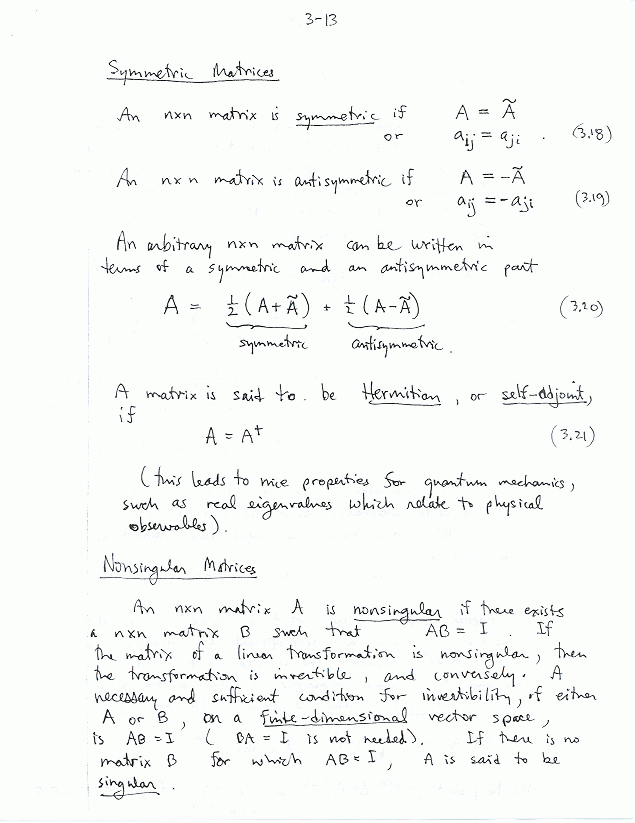 3-13
Symmetric Matrices
An nxn matrix is symmetric if A = Ã
or a_ij = a_ji . (3.18)
An nxn matrix is antisymmetric if A = -Ã
or a_ij = -a_ji (3.19)
An arbitrary nxn matrix can be written in
terms of a symmetric and an antisymmetric part
A = ½ (A+Ã) + ½ (A-Ã) (3.20)
symmetric antisymmetric.
A matrix is said to be Hermitian, or self-adjoint,
if
A = A† (3.21)
(this leads to nice properties for quantum mechanics,
such as real eigenvalues which relate to physical
observables).
Nonsingular Matrices
An nxn matrix A is nonsingular if there exists
a nxn matrix B such that AB = I . If
the matrix of a linear transformation is nonsingular, then
the transformation is invertible, and conversely. A
necessary and sufficient condition for invertibility, of either
A or B, on a finite-dimensional vector space,
is AB = I ( BA = I is not needed). If there is no
matrix B for which AB = I, A is said to be
singular.